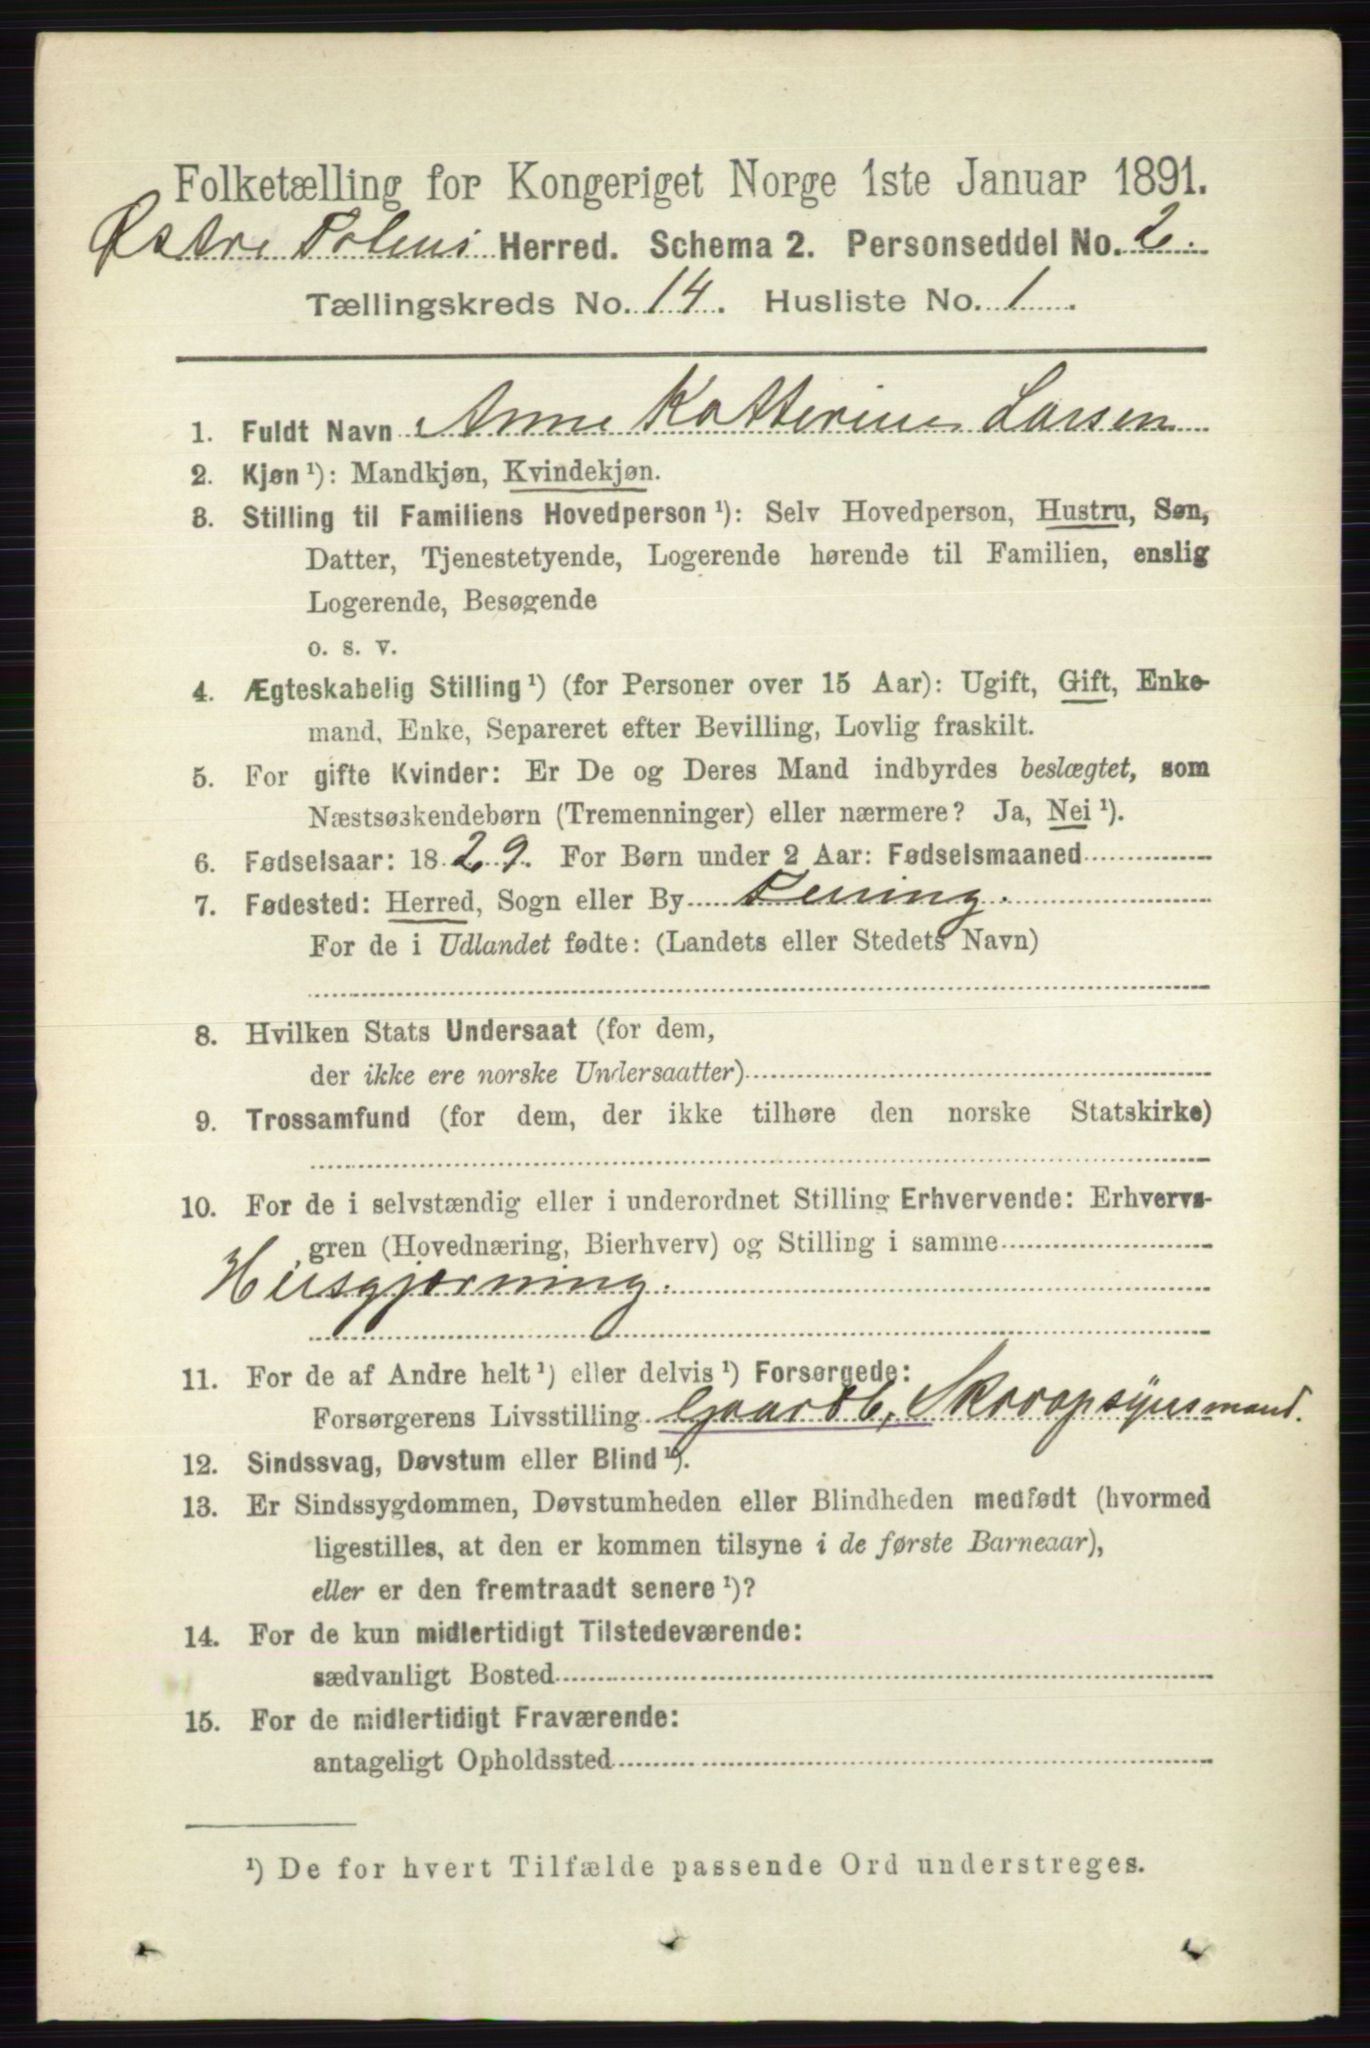 Folketælling for Kongeriget Norge 1ste Januar 1891.
Østre Totens Herred. Schema 2. Personseddel No. 2.
Tællingskreds No. 14. Husliste No. 1.
1. Fuldt Navn Anne Katterine Larsen
2. Kjøn¹): Mandkjøn, Kvindekjøn.
3. Stilling til Familiens Hovedperson¹): Selv Hovedperson, Hustru, Søn,
Datter, Tjenestetyende, Logerende hørende til Familien, enslig
Logerende, Besøgende
o. s. v.
4. Ægteskabelig Stilling¹) (for Personer over 15 Aar): Ugift, Gift, Enke-
mand, Enke, Separeret efter Bevilling, Lovlig fraskilt.
5. For gifte Kvinder: Er De og Deres Mand indbyrdes beslægtet, som
Næstsøskendebørn (Tremenninger) eller nærmere? Ja, Nei¹).
6. Fødselsaar: 1829. For Børn under 2 Aar: Fødselsmaaned
7. Fødested: Herred, Sogn eller By
For de i Udlandet fødte: (Landets eller Stedets Navn)
8. Hvilken Stats Undersaat (for dem,
der ikke ere norske Undersaatter)
9. Trossamfund (for dem, der ikke tilhøre den norske Statskirke)
10. For de i selvstændig eller i underordnet Stilling Erhvervende: Erhvervs-
gren (Hovednæring, Bierhverv) og Stilling i samme
Husgjørning.
11. For de af Andre helt¹) eller delvis¹) Forsørgede:
Forsørgerens Livsstilling Gaardb, Skovopsynsmand.
12. Sindssvag, Døvstum eller Blind¹).
13. Er Sindssygdommen, Døvstumheden eller Blindheden medfødt (hvormed
ligestilles, at den er kommen tilsyne i de første Barneaar),
eller er den fremtraadt senere¹)?
14. For de kun midlertidigt Tilstedeværende:
sædvanligt Bosted
15. For de midlertidigt Fraværende:
antageligt Opholdssted
¹) De for hvert Tilfælde passende Ord understreges.